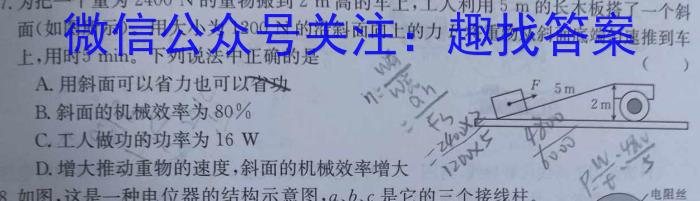 7.为把一个重为2400 N的重物搬到2 m高的车上,工人利用5 m的长木板搭了一个斜
面(如
上,用时5 min。下列说法中正确的是
( )
微信公众号关注：趣找答案
A.用斜面可以省力也可以省功
B.斜面的机械效率为80%
C.工人做功的功率为16 W
D.增大推动重物的速度,斜面的机械效率增大
F 5 m
2 m
2400×2
1200×5
4800
6000
8.如图,这是一种电位器的结构示意图,a、b、c是它的三个接线柱,
电阻丝